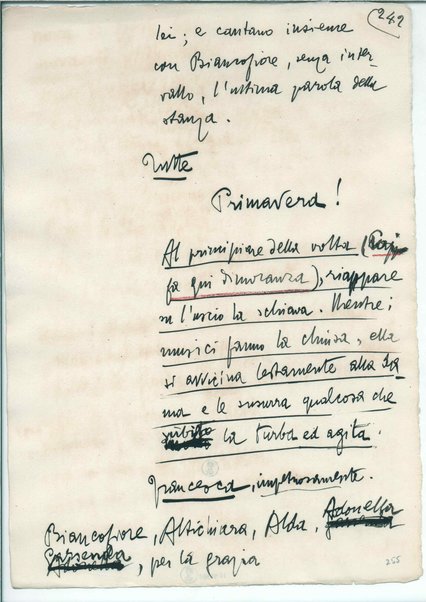 242
lei; e cantano insieme
con Biancofiore, senza inter-
vallo, l'ultima parola della
stanza.
Tutte
Primavera!
Al principiare della volta (
fa qui dimoranza), riappare
su l'uscio la schiava. Mentre i
musici fanno la chiusa, ella
si avvicina lestamente alla Da-
ma e le susurra qualcosa che
subito la turba ed agita.
Francesca, impetuosamente.
Biancofiore, Altichiara, Alda, Adonella
Garsenda, per la grazia
255